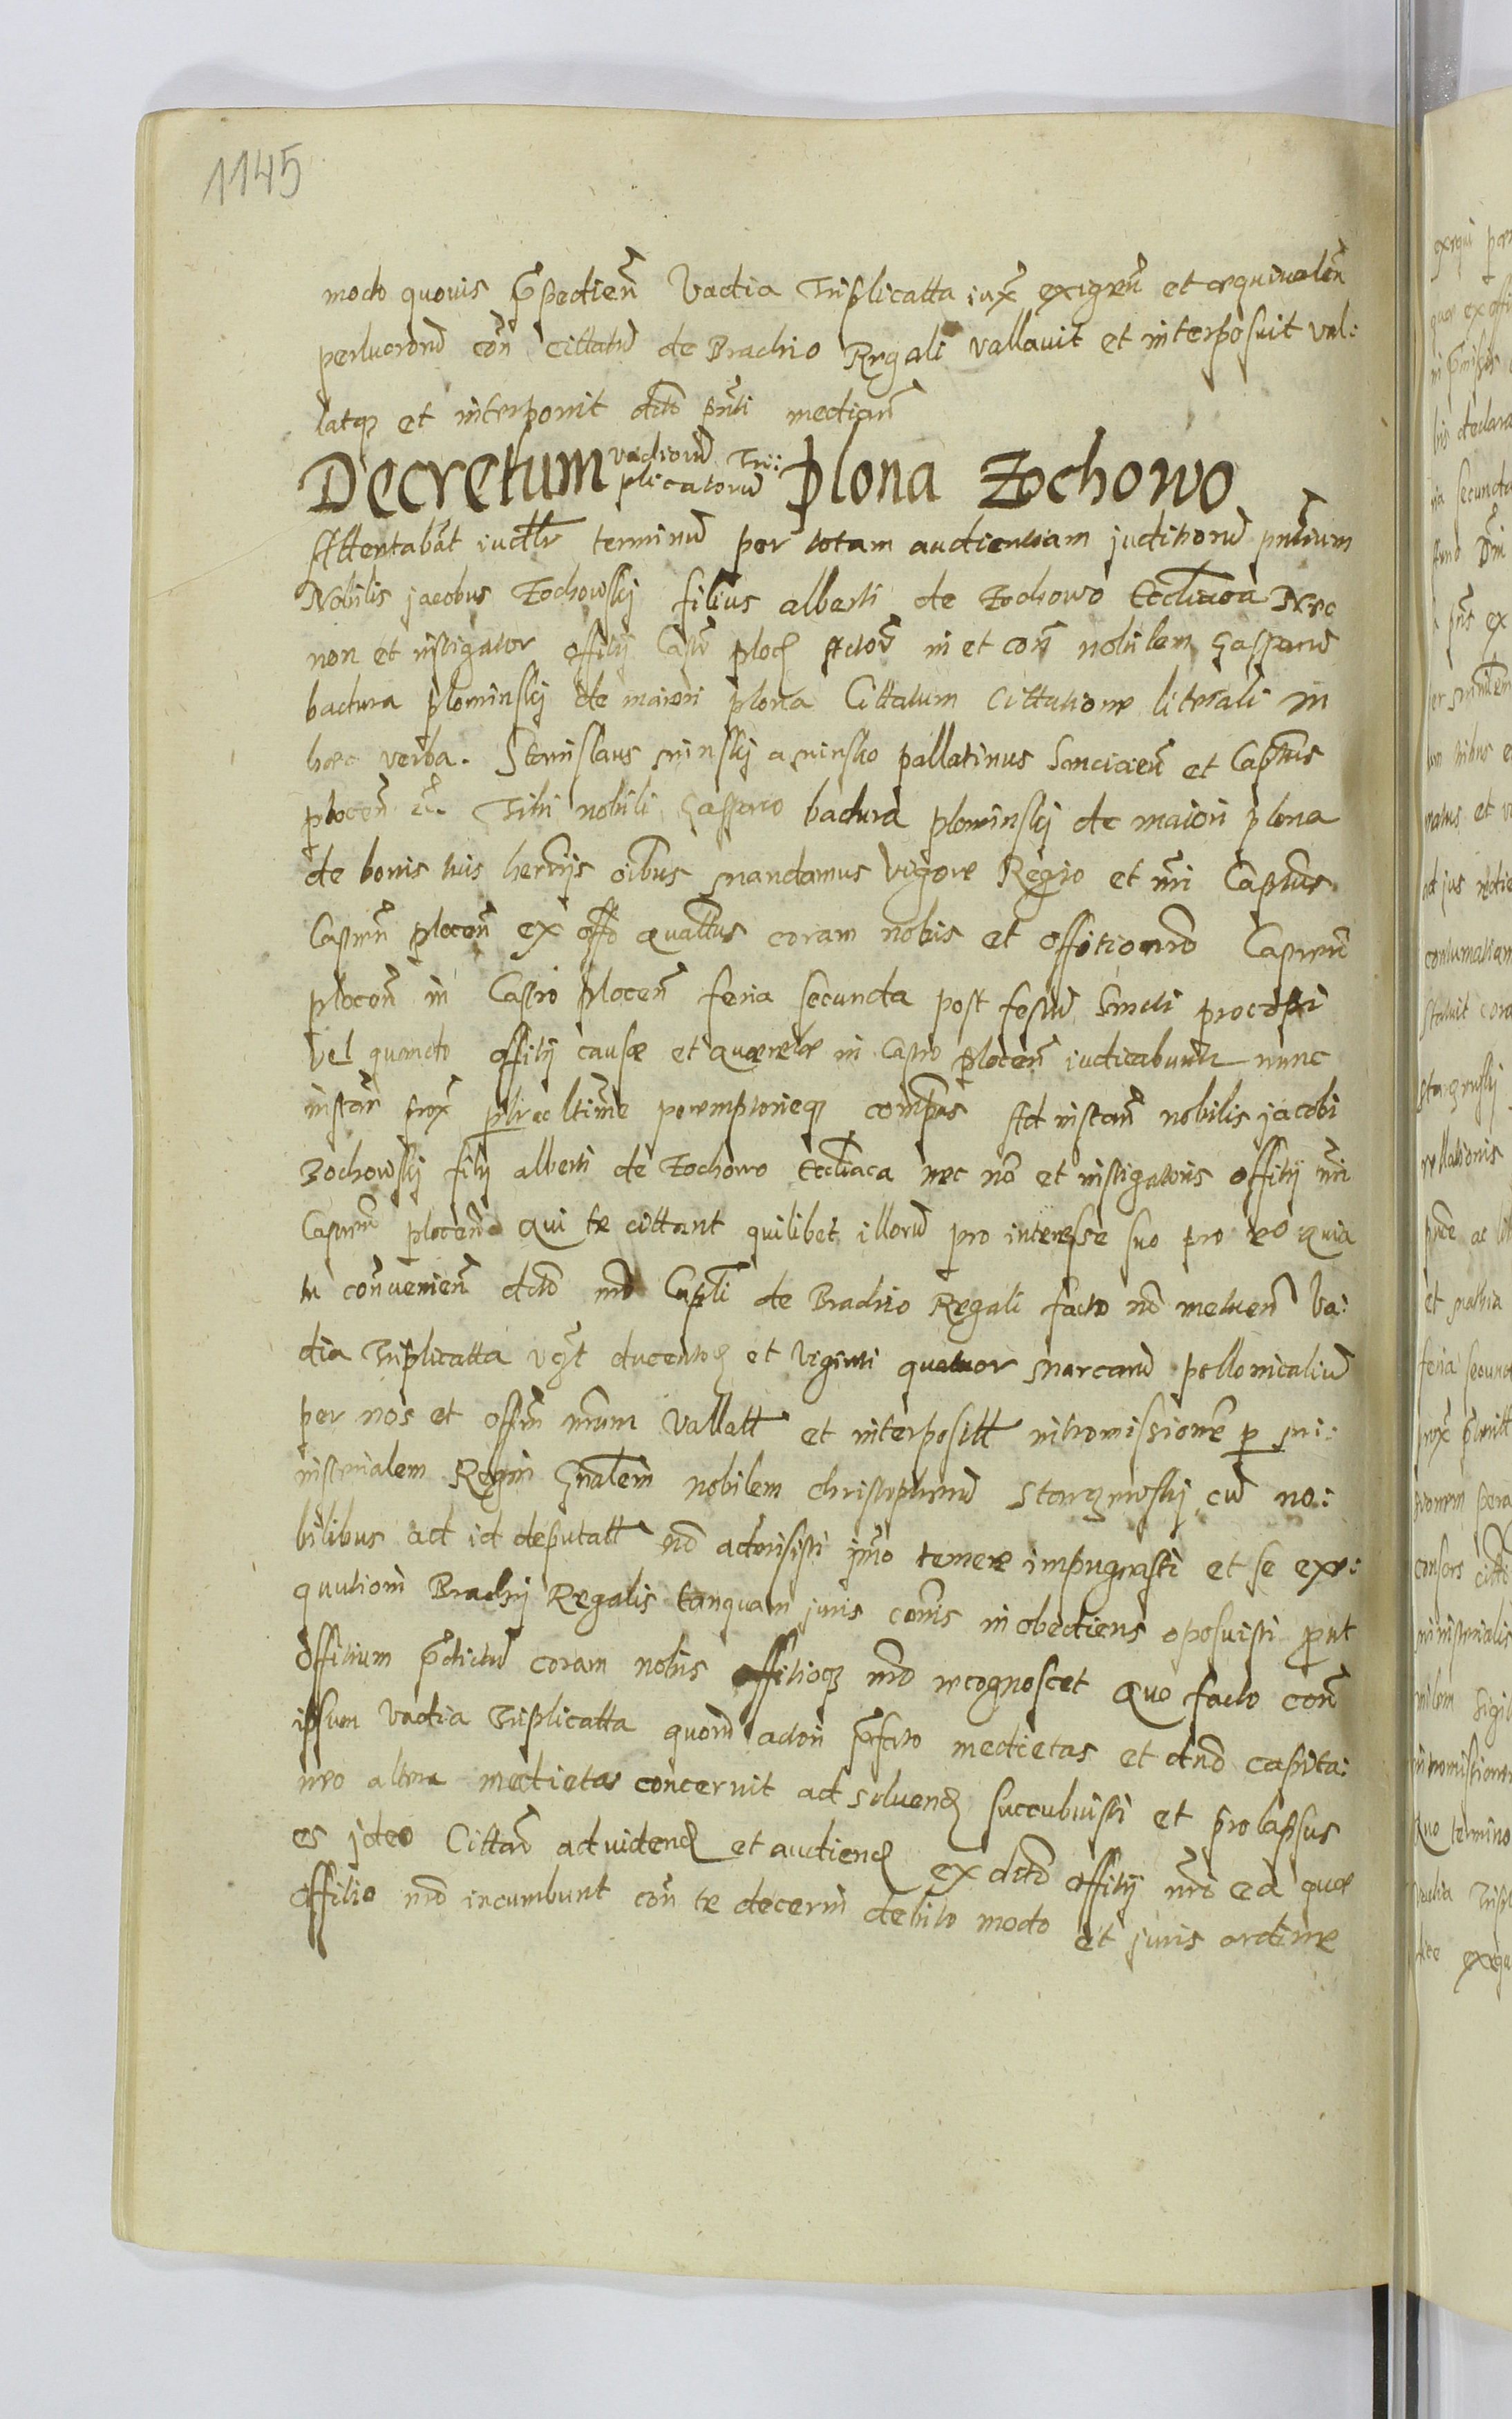 1145
modo quovis p̃pedien̄ Vadia Triplicatta iux̃ exigen̄ et æquivalen̄
perlucrand con̄ cittatū de Brachio Regali vallavit et interposuit val:
latq3 et interponit dctō pn̄ti median̄
Decretum vadiorū Tri: plicatorū Plona Zochowo
Attentabāt iudtr̄ terminū per totam audientiam juditiorū pn̄tium
Nobilis jacobus Zochowskj filius alberti de Zochowo Eccliaca Nec
non et instigator offitij Castr̄ ploc̄ Actor̄ in et con̄ nobilem Gasparū
badura plominskj de maiori plona Cittatum Cittatione literali in
hæc verba. Stanislaus minskj a minsko pallatinus Lanciciēn et Captn̄us
plocen̄ &c. Tibi nobili Gasparo badura plominskj de maiori plona
de bonis tuis herr̄ijs oībus mandamus Vigore Regio et nr̄i Captn̄us
Castren̄ plocen̄ ex offō quattn̄us coram nobis et offitio nrō Castren̄
plocen̄ in Castro plocen̄ feria secunda post festū Sancti procopi
vel quando offitij causæ et quærelæ in Castro plocen̄ iudicabuntr̄ nunc
instan̄ prox̄ plr̄ac ltīme peremptorieq3 compās Ad instan̄ nobilis jacobi
Zochowskj filij alberti de Zochowo Eccliaca nec nō et instigatoris offitij nr̄i
Castren̄ plocen̄ Qui te cittant quilibet illorū pro interesse suo pro eo quia
tu convenien̄ dctō nrō Captn̄li de Brachio Regali facto nō metuen̄ Va:
dia Triplicatta vg̃t ducentor̄ et viginti quatuor marcarū pollonicaliū
per nos et offm̄ nrum Vallatt et interpositt intromissione p mi:
nisterialem Regni Gn̄alem nobilem christophorū Starzewskj cū no:
bilibus ad id deputatt nō admisisti imo temere impugnasti et se exe:
qutioni Brachij Regalis tanquam juris comīs inobediens oposuisti put
offitium p̃dictū coram nobis offitioq3 nrō recognoscet Quo facto con̄
ipsum Vadia Triplicatta quorū actori p̃fato medietas et dno capita:
neo altera medietas concernit ad solvend̄ succubuisti et prolapsus
es jdeo Cittar̄ ad videnḍ et audiend̄ ex dctō offitij nr̄i ea quæ
offitio nrō incumbunt con̄ te decerni debito modo et juris ordine